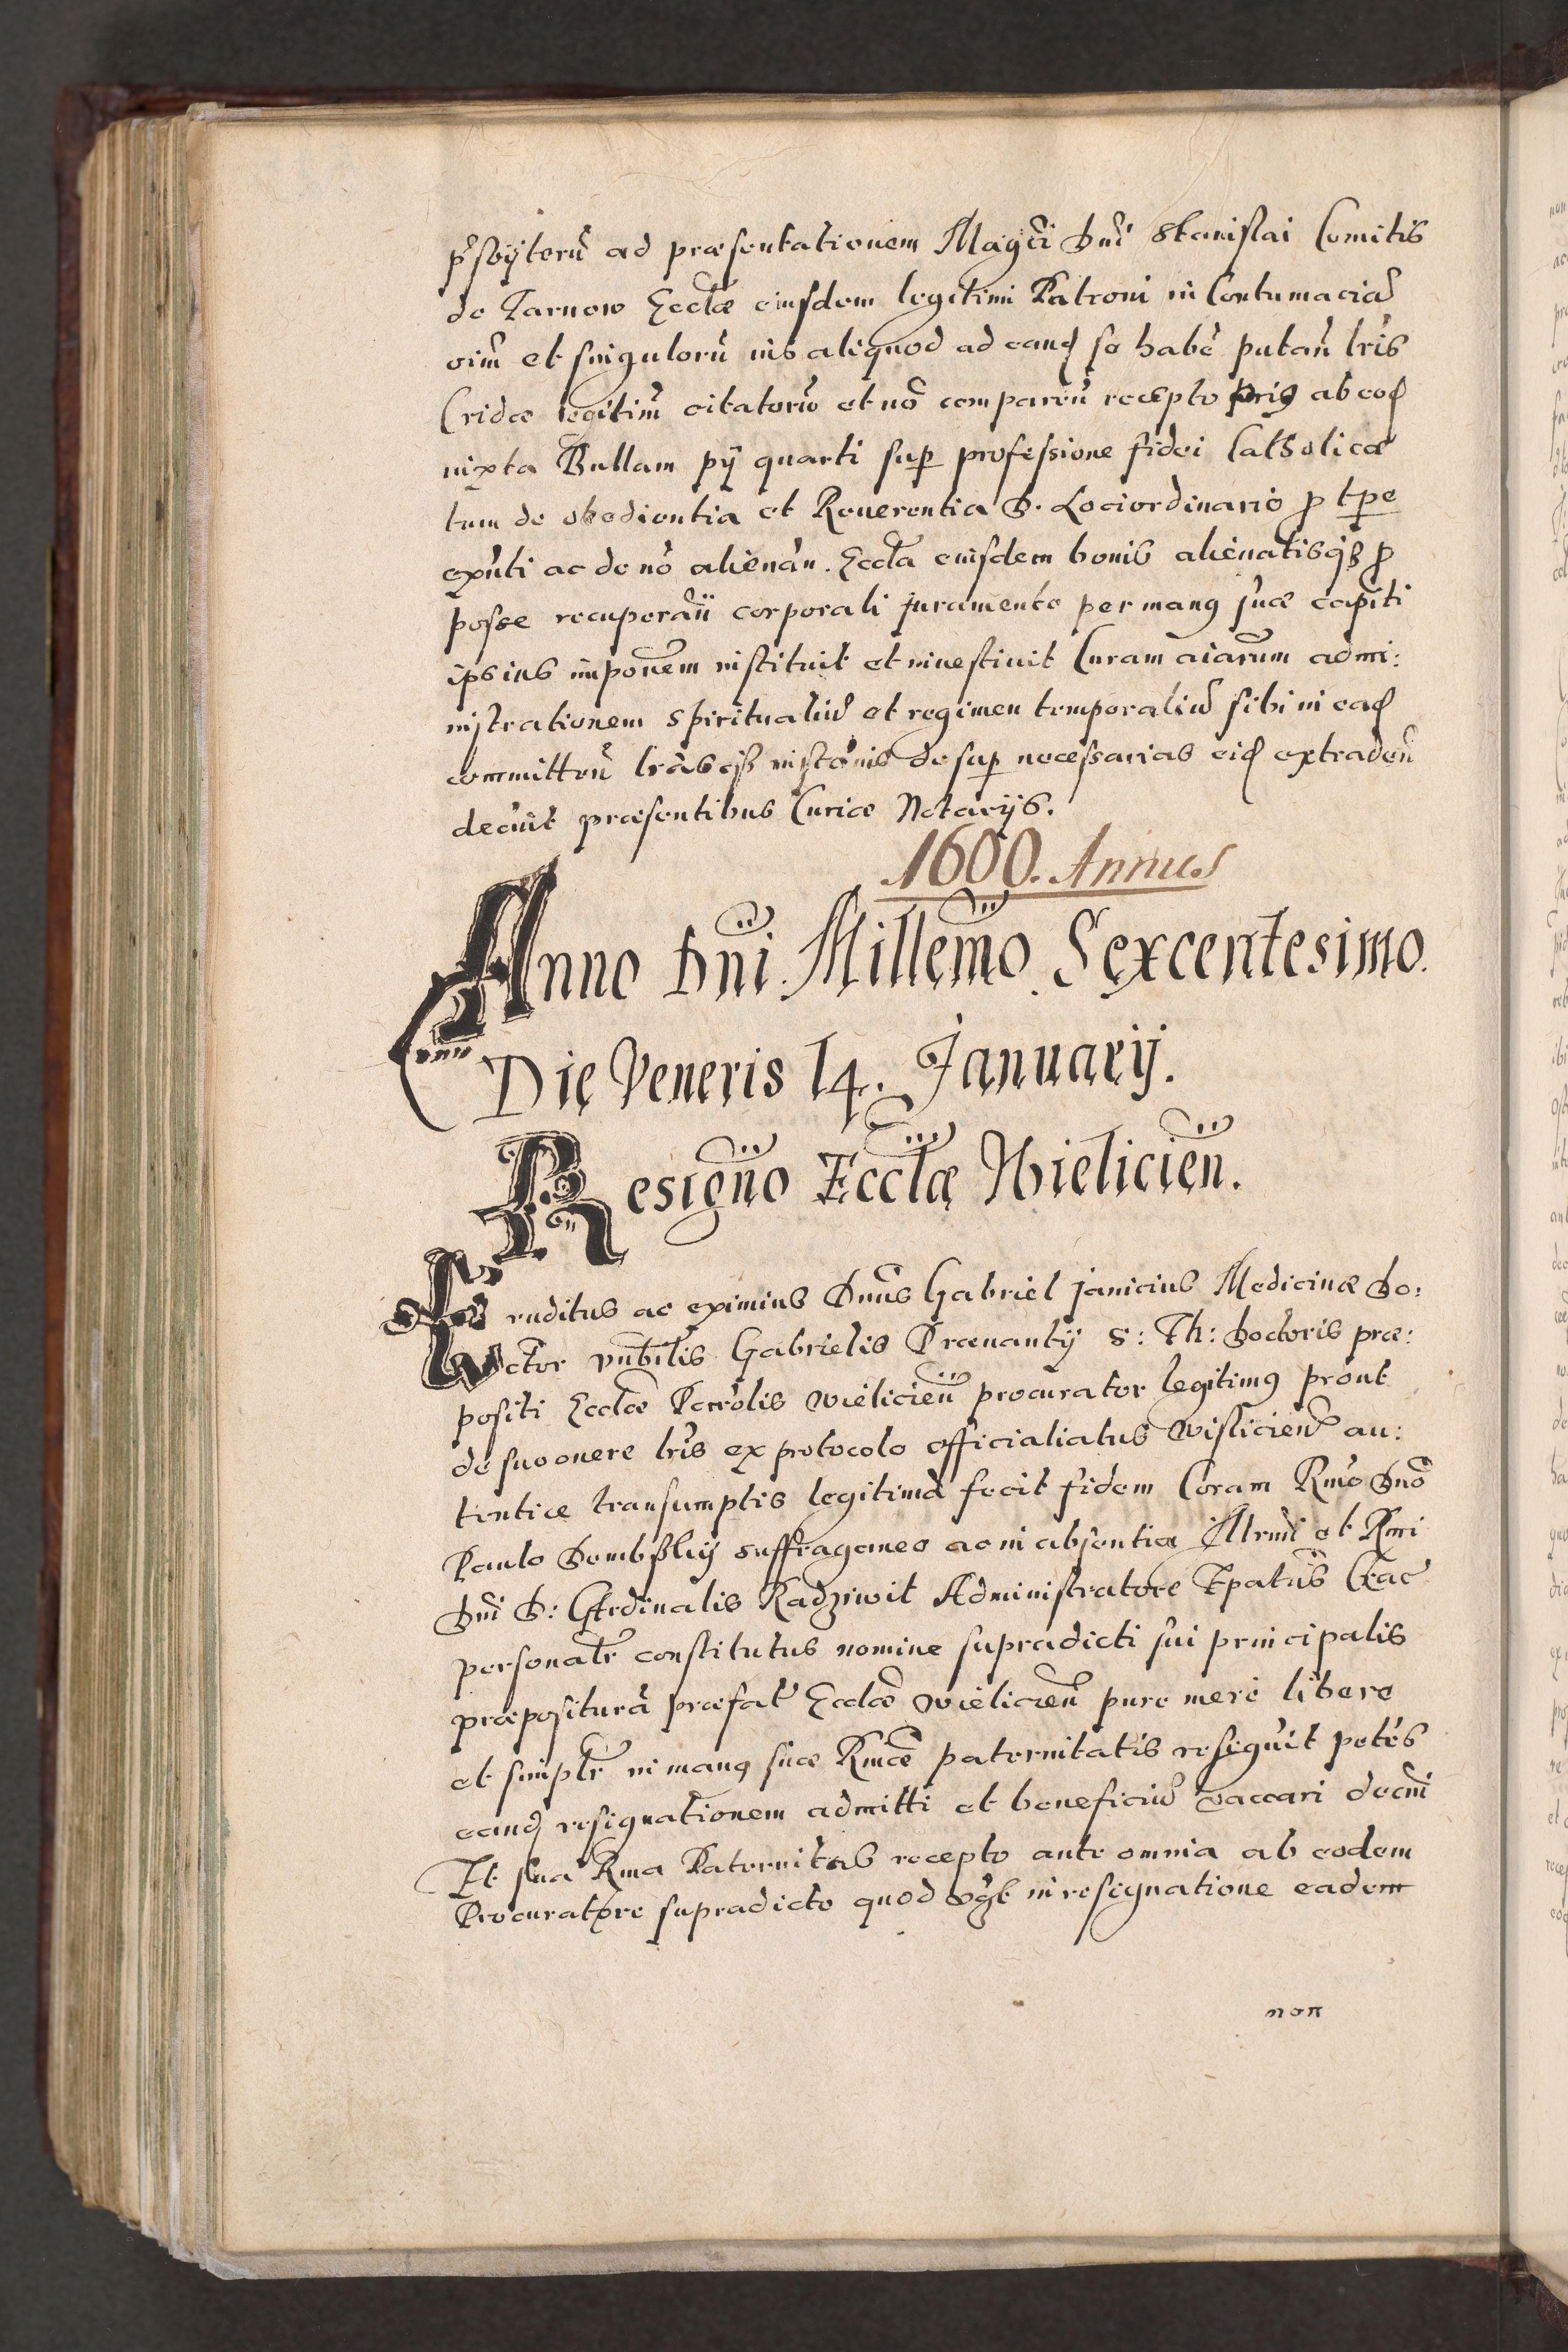 pr̃sbÿterũ ad præsentationem Mag̃ci Dñi Stanislai Comitis
de Tarnow Eccl̃æ eiusdem legitimi Patroni in Contumaciã
oĩm et singulorũ ius aliquod ad eand se habẽ putañ lr̃is
Cridæ legitim̃ citatorũ et nõ comparen̄ recepto prius ab eod
iuxta Bullam pÿ quarti sup professione fidei Catholicæ
tum de obedientia et Reuerentia D. Lociordinario p tpe
exñti ac de nõ alienañ. Eccl̃a eiusdem bonis alienatisq3 p
posse recuperañ corporali juramento per manus suæ capiti
ipsius impõnem instituit et inuestiuit Curam aĩarum admi:
nistrationem spiritualiũ et regimen temporaliũ sibi in ead
committeñ lr̃asq3 inst̃onis desup necessarias eid extradeñ
decũit præsentibus Curiæ Notarijs.
1600. Annus
Anno Dñi Millem̃o Sexcentesimo.
Die Veneris 14. Januarij.
Resigño Eccl̃æ Wielicieñ.
Eruditus ac eximius Dñus Gabriel janicius Medicinæ Do:
ctor v̄n̄bilis Gabrielis Præuantij S: Th: Doctoris præ:
positi Eccl̃æ Parr̃olis wielicieñ procurator legitimus prout
de suo onere lr̃is ex protocolo officialiatus wislicieñ au:
tentice transumptis legitimã fecit fidem Coram Rm̃o Dño
Paulo Dembskij suffraganeo ac in absentia Illrm̃i et Rm̃i
Dñi D: Cardinalis Radziwil Administratore Ep̃atus Crac
personalr̃ constitutus nomine supradicti sui principalis
præpositurã præfat̃ Eccl̃æ wielicieñ pure mere libere
et simplr̃ in manus suæ Rm̃æ paternitatis resignũit petẽs
eand resignationem admitti et beneficiũ vaccari decñi
Et sua Rm̃a Paternitas recepto ante omnia ab eodem
Procuratore supradicto quod in resignatione eadem
non